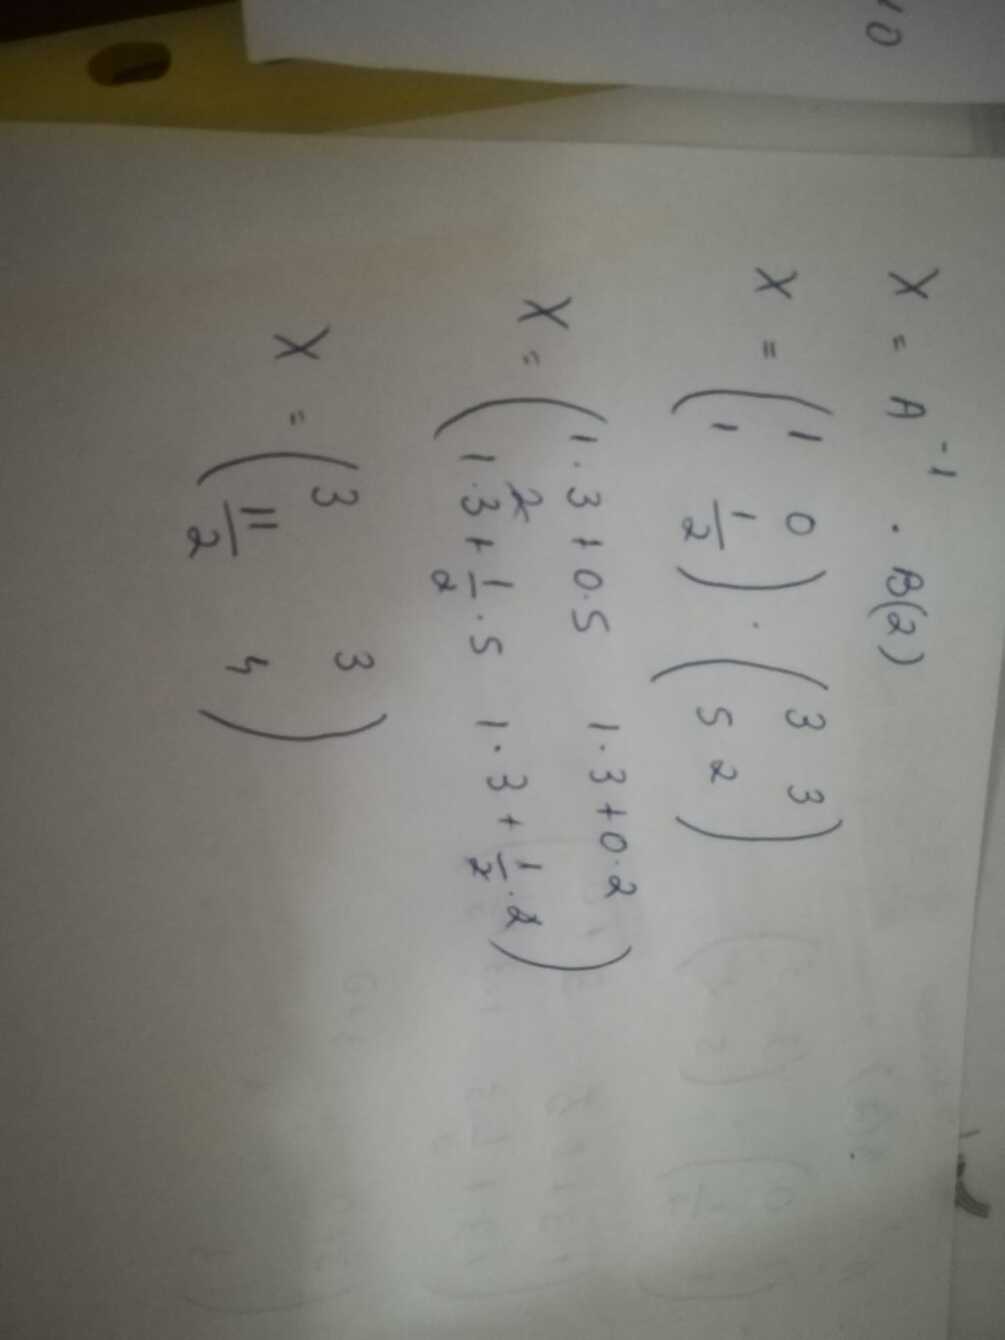 10
X = A⁻¹ · B(2)
X = (1 0
1 1/2) · (3 3
5 2)
X = (1·3+0·5 1·3+0·2
1·3+1/2·5 1·3+1/2·2)
X = (3 3
11/2 4)